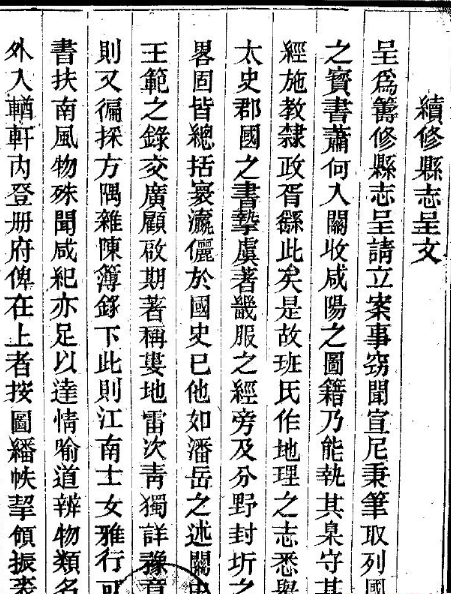 續修縣志呈文
呈爲籌修縣志呈請立案事窃聞宣尼秉筆取列國
之寳書蕭何入關收咸陽之圖籍乃能執其臬守其
經施教隸政胥繇此矣是故班氏作地理之志悉
太史郡國之書摯虞著畿服之經旁及分野封圻之
畧固皆總括寰瀛儷於國史已他如潘岳之述關中
王範之錄交廣顧啟期著稱婁地雷次青獨詳豫章
則又徧採方隅雜陳簿錄下此則江南士女雅行可
書扶南風物殊聞咸紀亦足以達情喻道辨物類名
外入輶軒内登册府俾在上者按圖繙帙挈領振裘